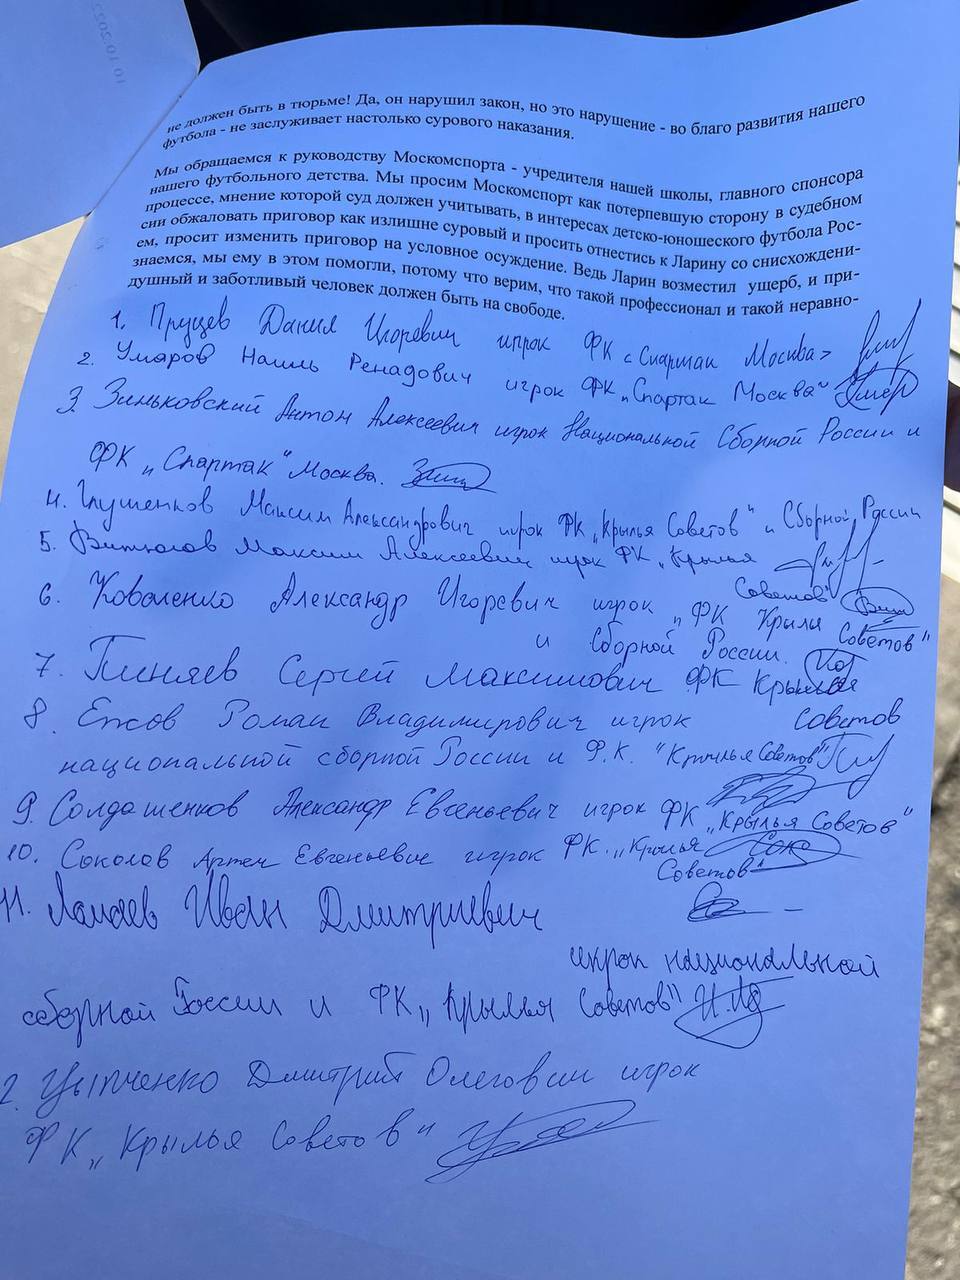 10.10.2022
не должен быть в тюрьме! Да, он нарушил закон, но это нарушение - во благо развития нашего
футбола - не заслуживает настолько сурового наказания.
Мы обращаемся к руководству Москомспорта - учредителя нашей школы, главного спонсора
нашего футбольного детства. Мы просим Москомспорт как потерпевшую сторону в судебном
процессе, мнение которой суд должен учитывать, в интересах детско-юношеского футбола Рос-
сии обжаловать приговор как излишне суровый и просить отнестись к Ларину со снисхождени-
ем, просит изменить приговор на условное осуждение. Ведь Ларин возместил ущерб, и при-
знаемся, мы ему в этом помогли, потому что верим, что такой профессионал и такой неравно-
душный и заботливый человек должен быть на свободе.
1. Пруцев Данил Игоревич игрок ФК «Спартак Москва»
2. Умяров Наиль Ренадович игрок ФК „Спартак Москва“
3. Зиньковский Антон Алексеевич игрок Национальной Сборной России и
ФК „Спартак“ Москва.
4. Глушенков Максим Александрович игрок ФК „Крылья Советов“ и Сборной России
5. Витюгов Максим Алексеевич игрок ФК „Крылья
Советов“
6. Коваленко Александр Игоревич игрок „ФК Крылья Советов“
и Сборной России.
7. Пиняев Сергей Максимович ФК Крылья
Советов
8. Ежов Роман Владимирович игрок
национальной сборной России и Ф.К. "Крылья Советов"
9. Солдатенков Александр Евгеньевич игрок ФК „Крылья Советов“
10. Соколов Артем Евгеньевич игрок ФК. „Крылья
Советов“
11. Ломаев Иван Дмитриевич
игрок национальной
сборной России и ФК „Крылья Советов“
2. Цыпченко Дмитрий Олегович игрок
ФК „Крылья Советов“